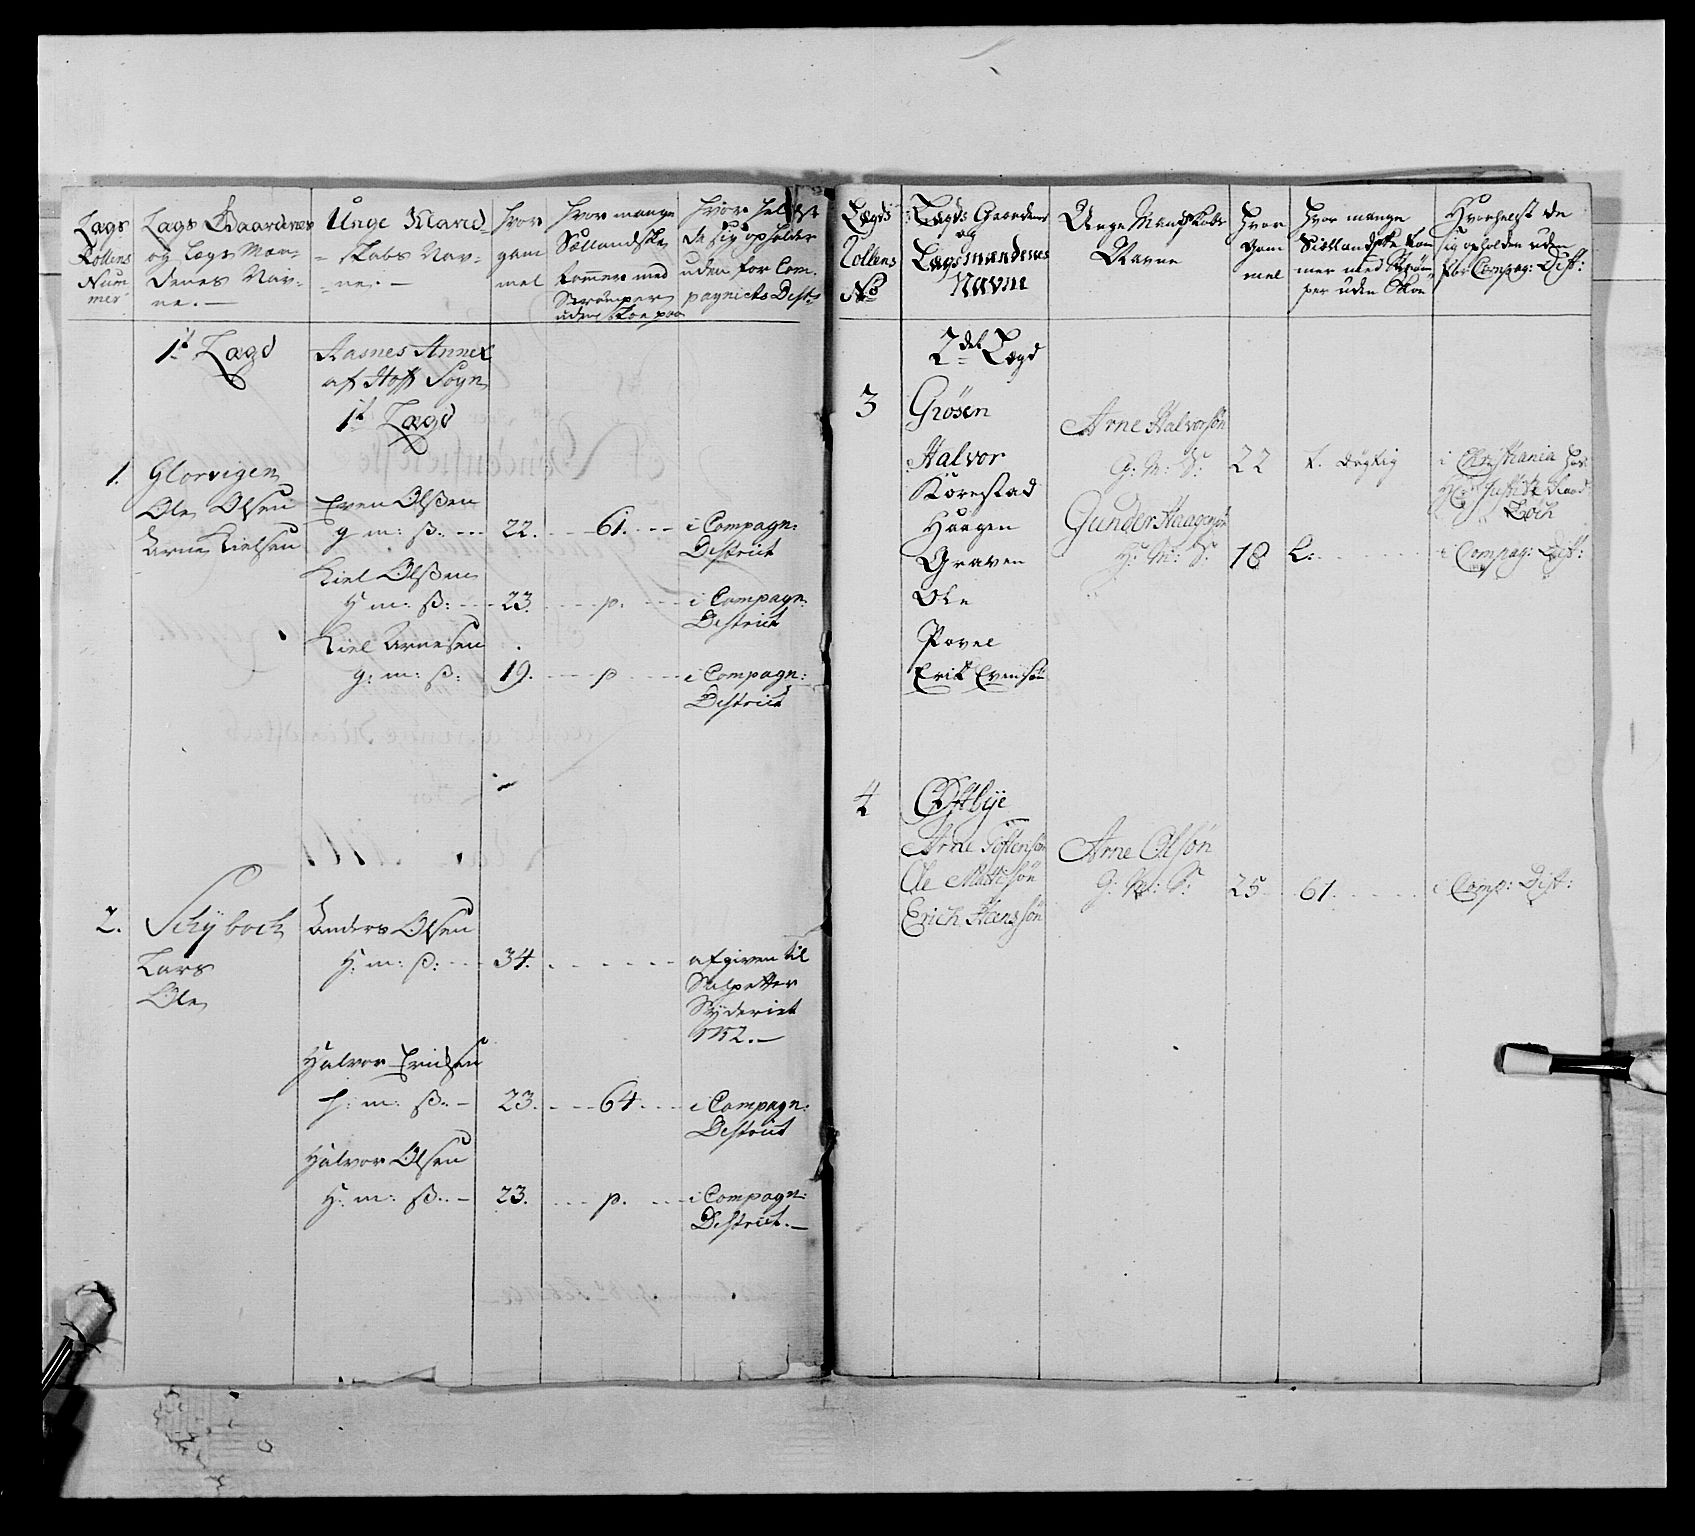 Lægs Rollens Nummer
Lægs Gaardenes og Lægs Mændenes Navne.
Unge Mandskabs Navne.
hvor gammel
hvor mange Sællandske tommer med Strømper uden Skoe paa
hvor helst de sig opholder uden for Compagniets Dist:
1t Lægd
Aasnes Annex
af Hoff Sogn
1t Lægd
1. Glorvigen
Ole Olsen
Arne Kielsen
Even Olsen
g: m: S: 22. 61. i Compagn: District
Kiel Olsen
H: m: S: 23. p. i Compagn: District
Kiel Arnesen
g: m: S: 19. p i Compagn: District
2. Schyboch
Lars
Ole
Anders Olsen
H: m: S: 34. afgiven til
Salpetter
Syderiet
1752.
Halvor Ericksen
h: m: S: 23. 64. i Compagn: District
Halvor Olsen
H: m: S: 23. p. i Compagn: District.
Lægds Rollens No
Lægds Gaardenes og Lægsmændenes Navne
Unge Mandskabs Navne
hvor Gammel
hvor mange Siællandske tommer med Strømper uden Skoe
Hvorhelst de sig opholden uden for Compag: Dist:
2det Lægd
3 Grøsen
Halvor
Korestad
Haagen
Graven
Ole
Povel
Erik Evensøn
Arne Halvorsøn
G: M: S: 22 t. døgtig i Christiania hos
Justitz Raad
Koch
Gunder Haagensøn
H: M: S: 18 L: i Compag: Dist:
4 Østbye
Arne Toftensøn
Ole Mattisøn
Erich Hanssøn
Arne Olsøn
G: M: S: 25 61. i Comp: Dist: